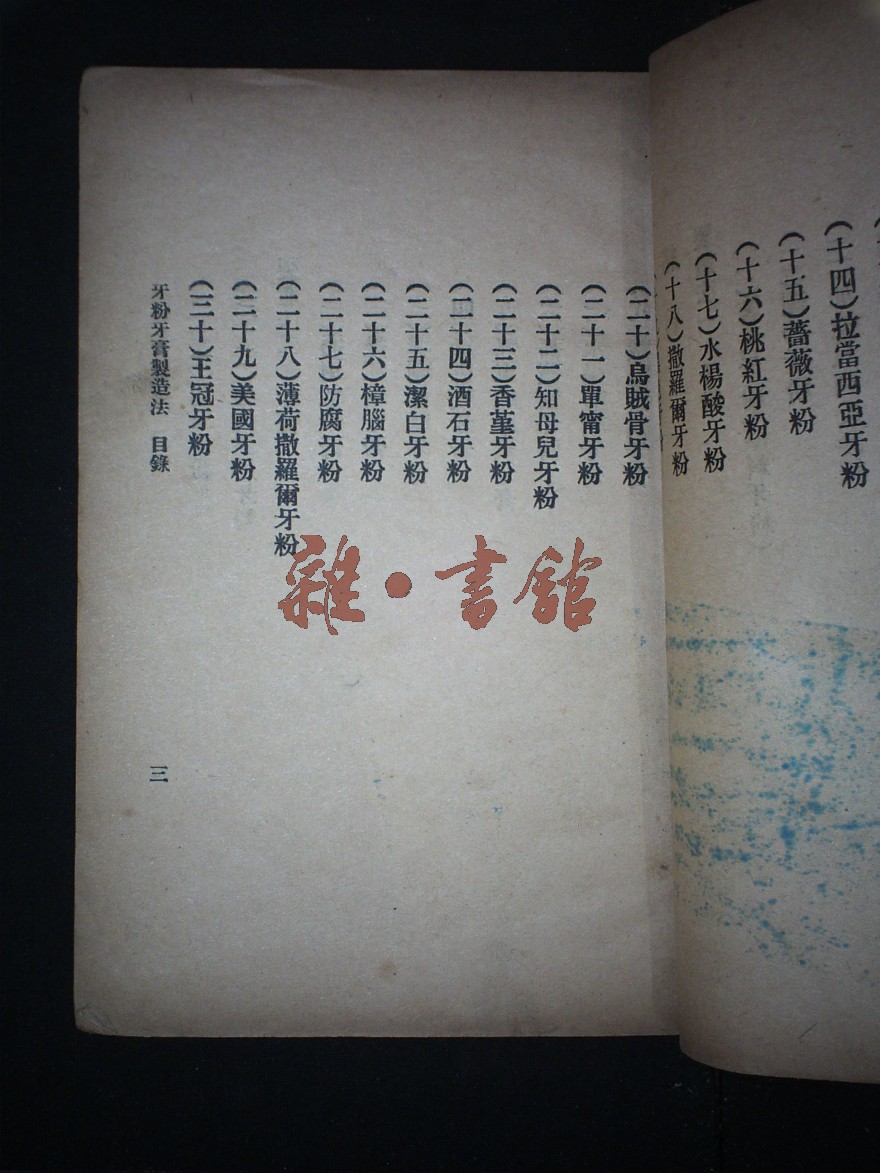 (十四)拉當西亞牙粉
(十五)薔薇牙粉
(十六)桃紅牙粉
(十七)水楊酸牙粉
(十八)撒羅爾牙粉
(二十)烏賊骨牙粉
(二十一)單甯牙粉
(二十二)知母兒牙粉
(二十三)香堇牙粉
(二十四)酒石牙粉
(二十五)潔白牙粉
(二十六)樟腦牙粉
(二十七)防腐牙粉
(二十八)薄荷撒羅爾牙粉
(二十九)美國牙粉
(三十)王冠牙粉
牙粉牙膏製造法 目錄
三
雜·書館